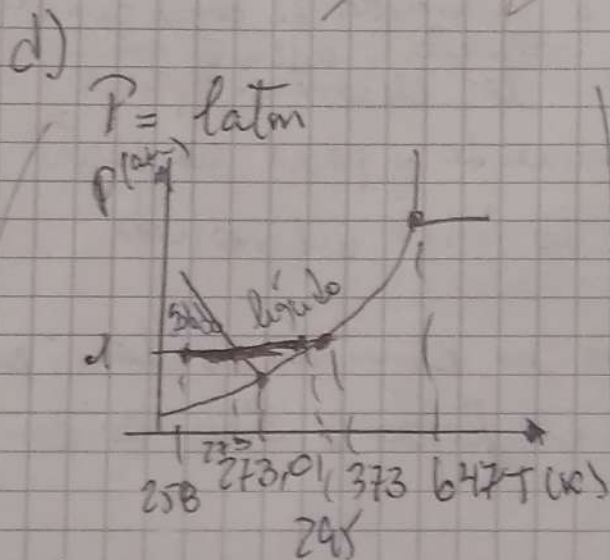 d)
P = 1atm
P(atm)
líquido
1
273
258 273,01 373 647 T(K)
295